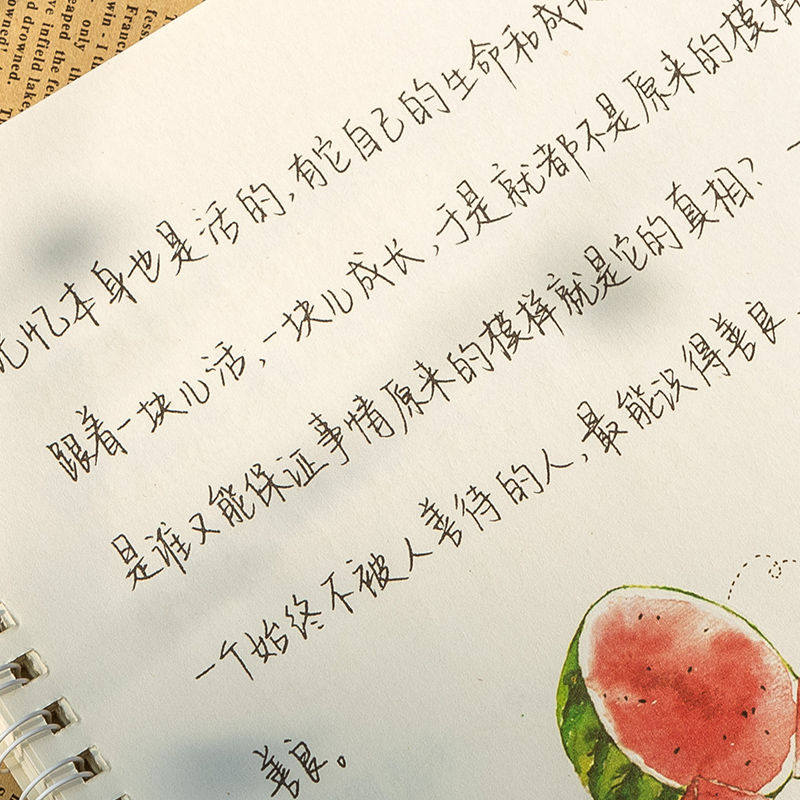 fess
win - I t
Franc
only th
eaped the fe
ve infield lake,
d drowned.
owned'
记忆本身也是活的,有它自己的生命和成长
跟着一块儿活,一块儿成长,于是就都不是原来的模样
是谁又能保证事情原来的模样就是它的真相?一
一个始终不被人善待的人,最能识得善良,
善良。